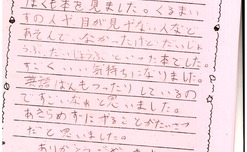 ぼくも本を見ました。くるまい
すの人や目が見えない人など
あそんで、なかったけど、だいじょ
うぶ、だいじょうぶといった本でした。
すごくいい気持ちになりました。
英語はんもつたりしているの
ですごいなぁと思いました。
あきらめずにやることがたいせつ
だと思いました。
ありがとうございました